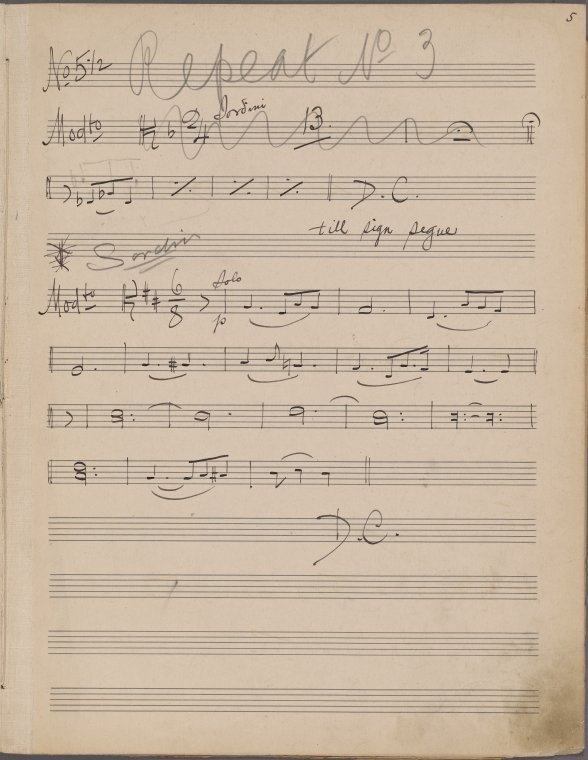 5
No 5 1/2 Repeat No 3
Modto 2/4 Sordini 13
D.C.
till sign segue
Sordini
Modto 6/8 Solo
p
D.C.